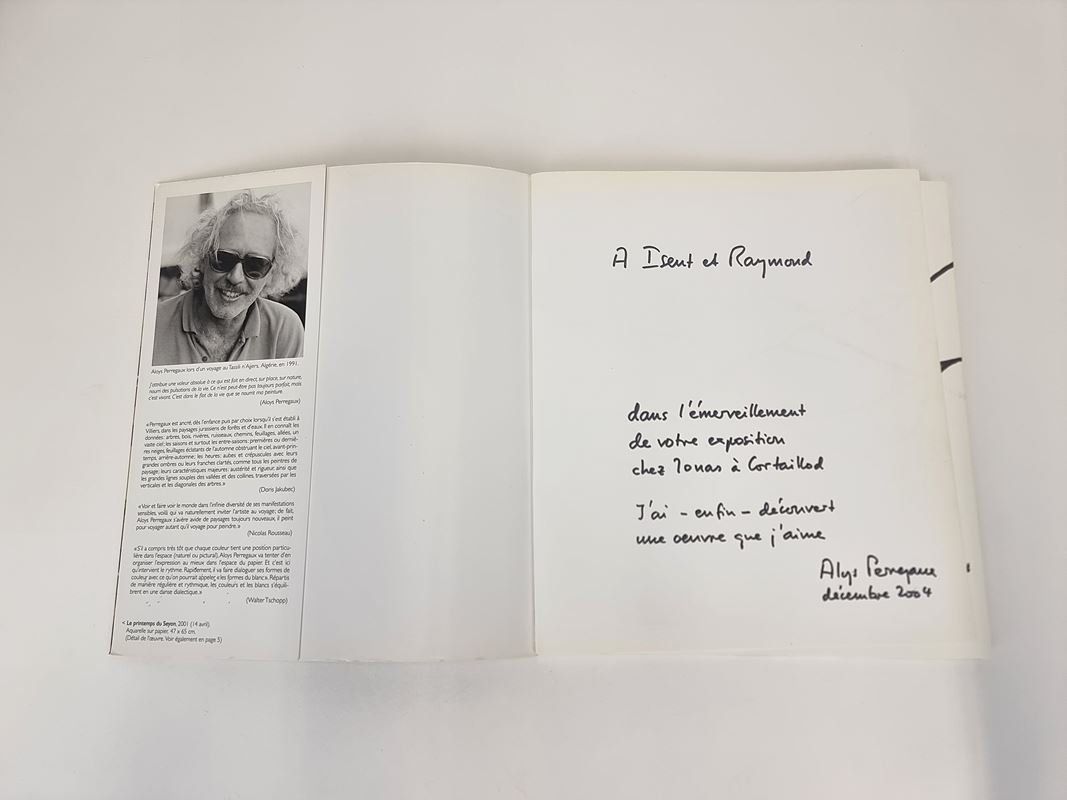 Aloys Perregaux lors d'un voyage au Tassili n'Ajjers, Algérie, en 1991.
J'attribue une valeur absolue à ce qui est fait en direct, sur place, sur nature,
nourri des pulsations de la vie. Ce n'est peut-être pas toujours parfait, mais
c'est vivant. C'est dans le flot de la vie que se nourrit ma peinture.
(Aloys Perregaux)
«Perregaux est ancré, dès l'enfance puis par choix lorsqu'il s'est établi à
Villiers, dans les paysages jurassiens de forêts et d'eaux. Il en connaît les
données: arbres, bois, rivières, ruisseaux, chemins, feuillages, allées, un
vaste ciel; les saisons et surtout les entre-saisons: premières ou derniè-
res neiges, feuillages éclatants de l'automne obstruant le ciel, avant-prin-
temps, arrière-automne; les heures: aubes et crépuscules avec leurs
grandes ombres ou leurs franches clartés, comme tous les peintres de
paysage; leurs caractéristiques majeures: austérité et rigueur, ainsi que
les grandes lignes souples des vallées et des collines, traversées par les
verticales et les diagonales des arbres.»
(Doris Jakubec)
«Voir et faire voir le monde dans l'infinie diversité de ses manifestations
sensibles, voilà qui va naturellement inviter l'artiste au voyage; de fait,
Aloys Perregaux s'avère avide de paysages toujours nouveaux, il peint
pour voyager autant qu'il voyage pour peindre.»
(Nicolas Rousseau)
«S'il a compris très tôt que chaque couleur tient une position particu-
lière dans l'espace (naturel ou pictural), Aloys Perregaux va tenter d'en
organiser l'expression au mieux dans l'espace du papier. Et c'est ici
qu'intervient le rythme. Rapidement, il va faire dialoguer ses formes de
couleur avec ce qu'on pourrait appeler «les formes du blanc». Répartis
de manière régulière et rythmique, les couleurs et les blancs s'équili-
brent en une danse dialectique.»
(Walter Tschopp)
< Le printemps du Seyon, 2001 (14 avril).
Aquarelle sur papier, 47 x 65 cm.
(Détail de l'œuvre. Voir également en page 5)
A Isent et Raymond
dans l'émerveillement
de votre exposition
chez Jonas à Cortaillod
J'ai - enfin - découvert
une oeuvre que j'aime
Alys Perregaux
décembre 2004